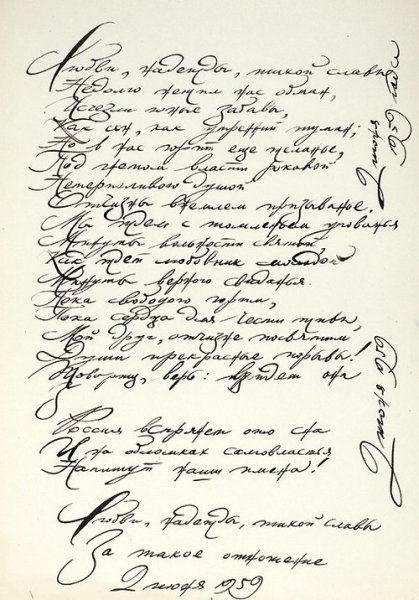 Любви, надежды, тихой славы
Недолго нежил нас обман,
Исчезли юные забавы,
Как сон, как утренний туман;
Но в нас горит еще желанье,
Под гнетом власти роковой
Нетерпеливою душой
Отчизны внемлем призыванье.
Мы ждем с томленьем упованья
Минуты вольности святой,
Как ждет любовник молодой
Минуты верного свиданья.
Пока свободою горим,
Пока сердца для чести живы,
Мой друг, отчизне посвятим
Души прекрасные порывы!
Товарищ, верь: взойдет она
З
Россия вспрянет ото сна
И на обломках самовластья
Напишут наши имена!
Любви, надежды, тихой славы
За такое отношение
2 1959